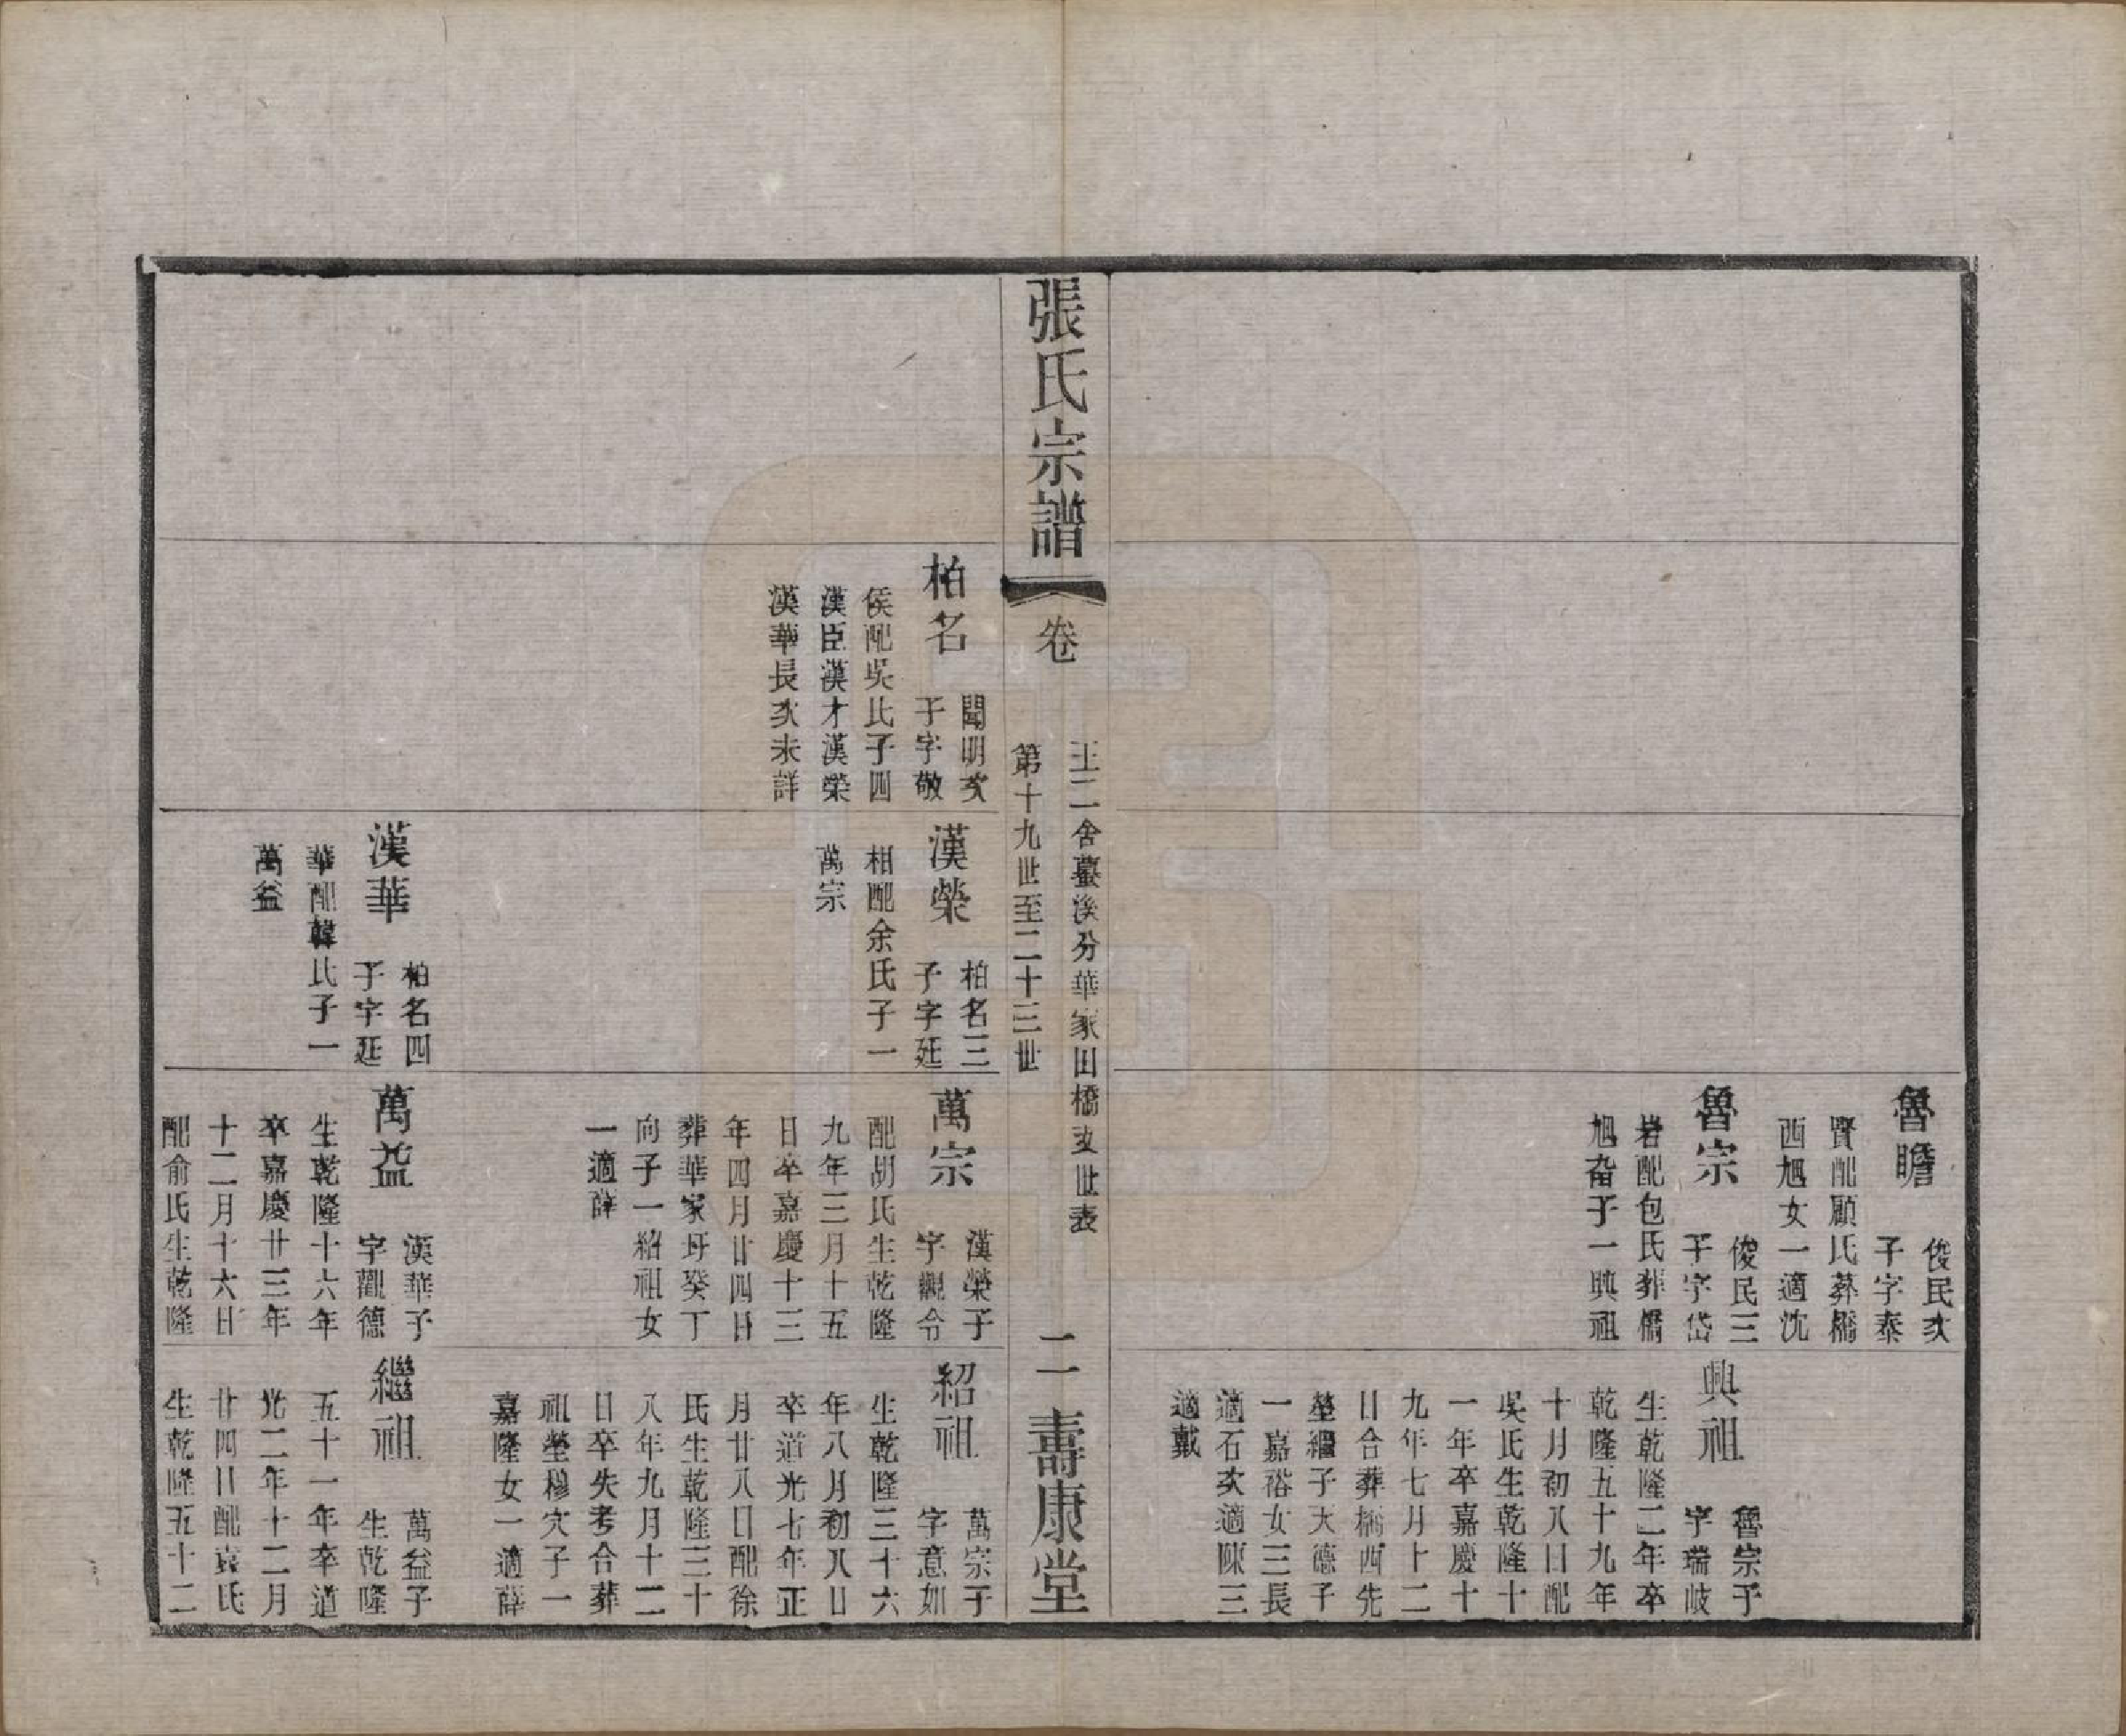 魯瞻
俊民次
子字泰
賢配顧氏葬橋
西旭女一適沈
魯宗
俊民三
子字岱
岩配包氏葬橋
旭畨子一興祖
興祖
魯宗子
字瑞岐
生乾隆二年卒
乾隆五十九年
十月初八日配
吳氏生乾隆十
一年卒嘉慶十
九年七月十二
日合葬橋西先
塋繼子大德子
一嘉裕女三長
適石次適陳三
適戴
張氏宗譜
卷
王二舍蠡溪分華家田橋支世表
第十九世至二十三世
二
壽康堂
柏名
聞明次
子字敬
侯配吳氏子四
漢臣漢才漢榮
漢華長次未詳
漢榮
柏名三
子字廷
相配余氏子一
萬宗
漢華
柏名四
子字廷
華配韓氏子一
萬益
萬宗
漢榮子
字觀令
配胡氏生乾隆
九年三月十五
日卒嘉慶十三
年四月廿四日
葬華家圩癸丁
向子一紹祖女
一適薛
萬益
漢華子
字觀德
生乾隆十六年
卒嘉慶廿三年
十二月十六日
配俞氏生乾隆
紹祖
萬宗子
字意如
生乾隆三十六
年八月初八日
卒道光七年正
月廿八日配徐
氏生乾隆三十
八年九月十二
日卒失考合葬
祖塋穆穴子一
嘉隆女一適薛
繼祖
萬益子
生乾隆
五十一年卒道
光二年十二月
廿四日配袁氏
生乾隆五十二